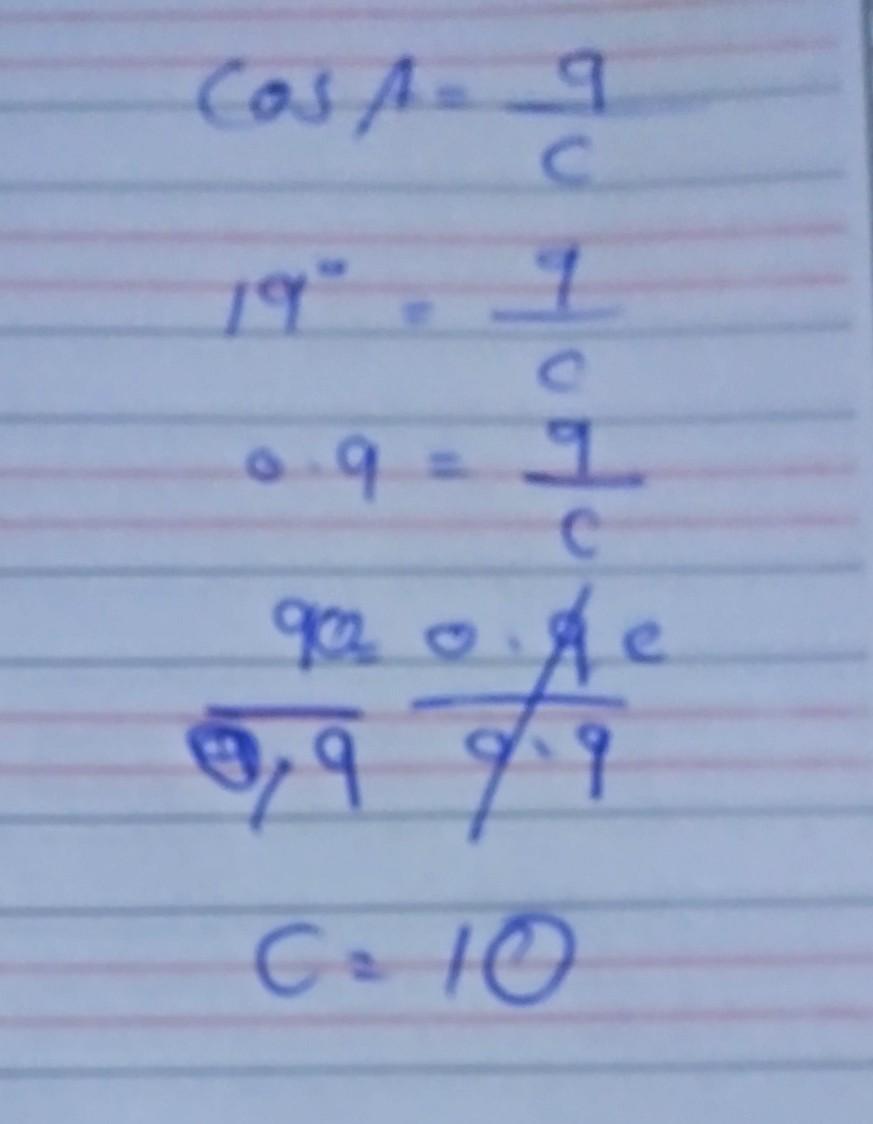 Cos A = 9/C
19° = 9/C
0.9 = 9/C
9 = 0.9 c
0.9 0.9
C = 10